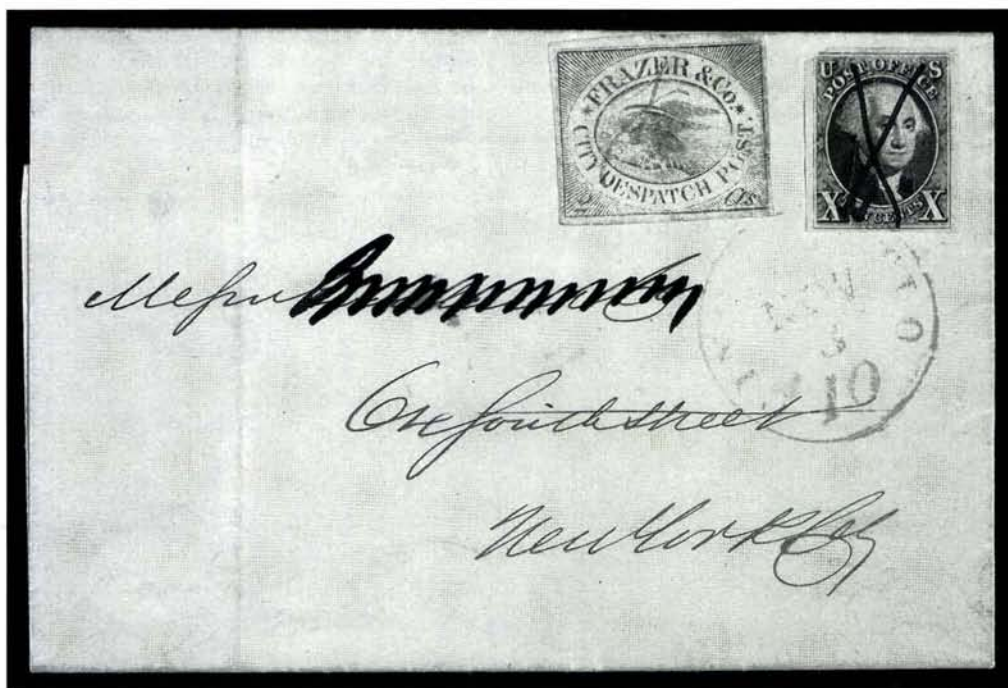 FRAZER & Co.
CITY DESPATCH POST
2 Cts
U S
POST OFFICE
X CENTS X
NOV
3
10
Messrs
South Street
New York City